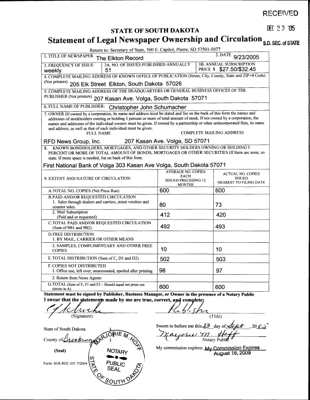 RECEIVED
DEC 23 '05
STATE OF SOUTH DAKOTA
Statement of Legal Newspaper Ownership and Circulation
S.D. SEC. of STATE
Return to: Secretary of State, 500 E. Capitol, Pierre, SD 57501-5077
1. TITLE OF NEWSPAPER The Elkton Record
2. DATE 9/23/2005
3. FREQUENCY OF ISSUE weekly
3A. NO. OF ISSUES PUBLISHED ANNUALLY 51
3B. ANNUAL SUBSCRIPTION PRICE $ $27.50/$32.45
4. COMPLETE MAILING ADDRESS OF KNOWN OFFICE OF PUBLICATION (Street, City, County, State and ZIP+4 Code)
(Not printers) 205 Elk Street Elkton, South Dakota 57026
5. COMPLETE MAILING ADDRESS OF THE HEADQUARTERS OR GENERAL BUSINESS OFFICES OF THE
PUBLISHER (Not printers) 207 Kasan Ave. Volga, South Dakota 57071
6. FULL NAME OF PUBLISHER: Christopher John Schumacher
7. OWNER (If owned by a corporation, its name and address must be stated and list on the back of this form the names and
addresses of stockholders owning or holding 1 percent or more of total amount of stock. If not owned by a corporation, the
names and addresses of the individual owners must be given. If owned by a partnership or other unincorporated firm, its name
and address, as well as that of each individual must be given.
FULL NAME COMPLETE MAILING ADDRESS
RFD News Group, Inc. 207 Kasan Ave. Volga, SD 57071
8. KNOWN BONDHOLDERS, MORTGAGES, AND OTHER SECURITY HOLDERS OWNING OR HOLDING 1
PERCENT OR MORE OF TOTAL AMOUNT OF BONDS, MORTGAGES OR OTHER SECURITIES (If there are none, so
state. If more space is needed, list on back of this form.
First National Bank of Volga 303 Kasan Ave Volga, South Dakota 57071
9. EXTENT AND NATURE OF CIRCULATION
AVERAGE NO. COPIES EACH ISSUED PRECEDING 12 MONTHS
ACTUAL NO. COPIES ISSUED NEAREST TO FILING DATE
A. TOTAL NO. COPIES (Net Press Run) 600 600
B. PAID AND/OR REQUESTED CIRCULATION
1. Sales through dealers and carriers, street vendors and
counter sales. 80 73
2. Mail Subscription
(Paid and or requested) 412 420
C. TOTAL PAID AND/OR REQUESTED CIRCULATION
(Sum of 9B1 and 9B2) 492 493
D. FREE DISTRIBUTION
1. BY MAIL, CARRIER OR OTHER MEANS
2. SAMPLES, COMPLIMENTARY AND OTHER FREE
COPIES 10 10
E. TOTAL DISTRIBUTION (Sum of C, D1 and D2) 502 503
F. COPIES NOT DISTRIBUTED
1. Office use, left over, unaccounted, spoiled after printing 98 97
2. Return from News Agents
G. TOTAL (Sum of E, F1 and F2 - Should equal net press run
shown in A) 600 600
Statement must be signed by Publisher, Business Manager, or Owner in the presence of a Notary Public
I swear that the statements made by me are true, correct, and complete:
Publisher
(Signature) (Title)
State of South Dakota
Sworn to before me this 29 day of Sept, 2005
County of Brookings
Marjorie M. Hoff
Notary Public
(Seal)
My commission expires: My Commission Expires
August 18, 2009
MARJORIE M. HOFF
NOTARY
PUBLIC
SEAL
STATE OF SOUTH DAKOTA